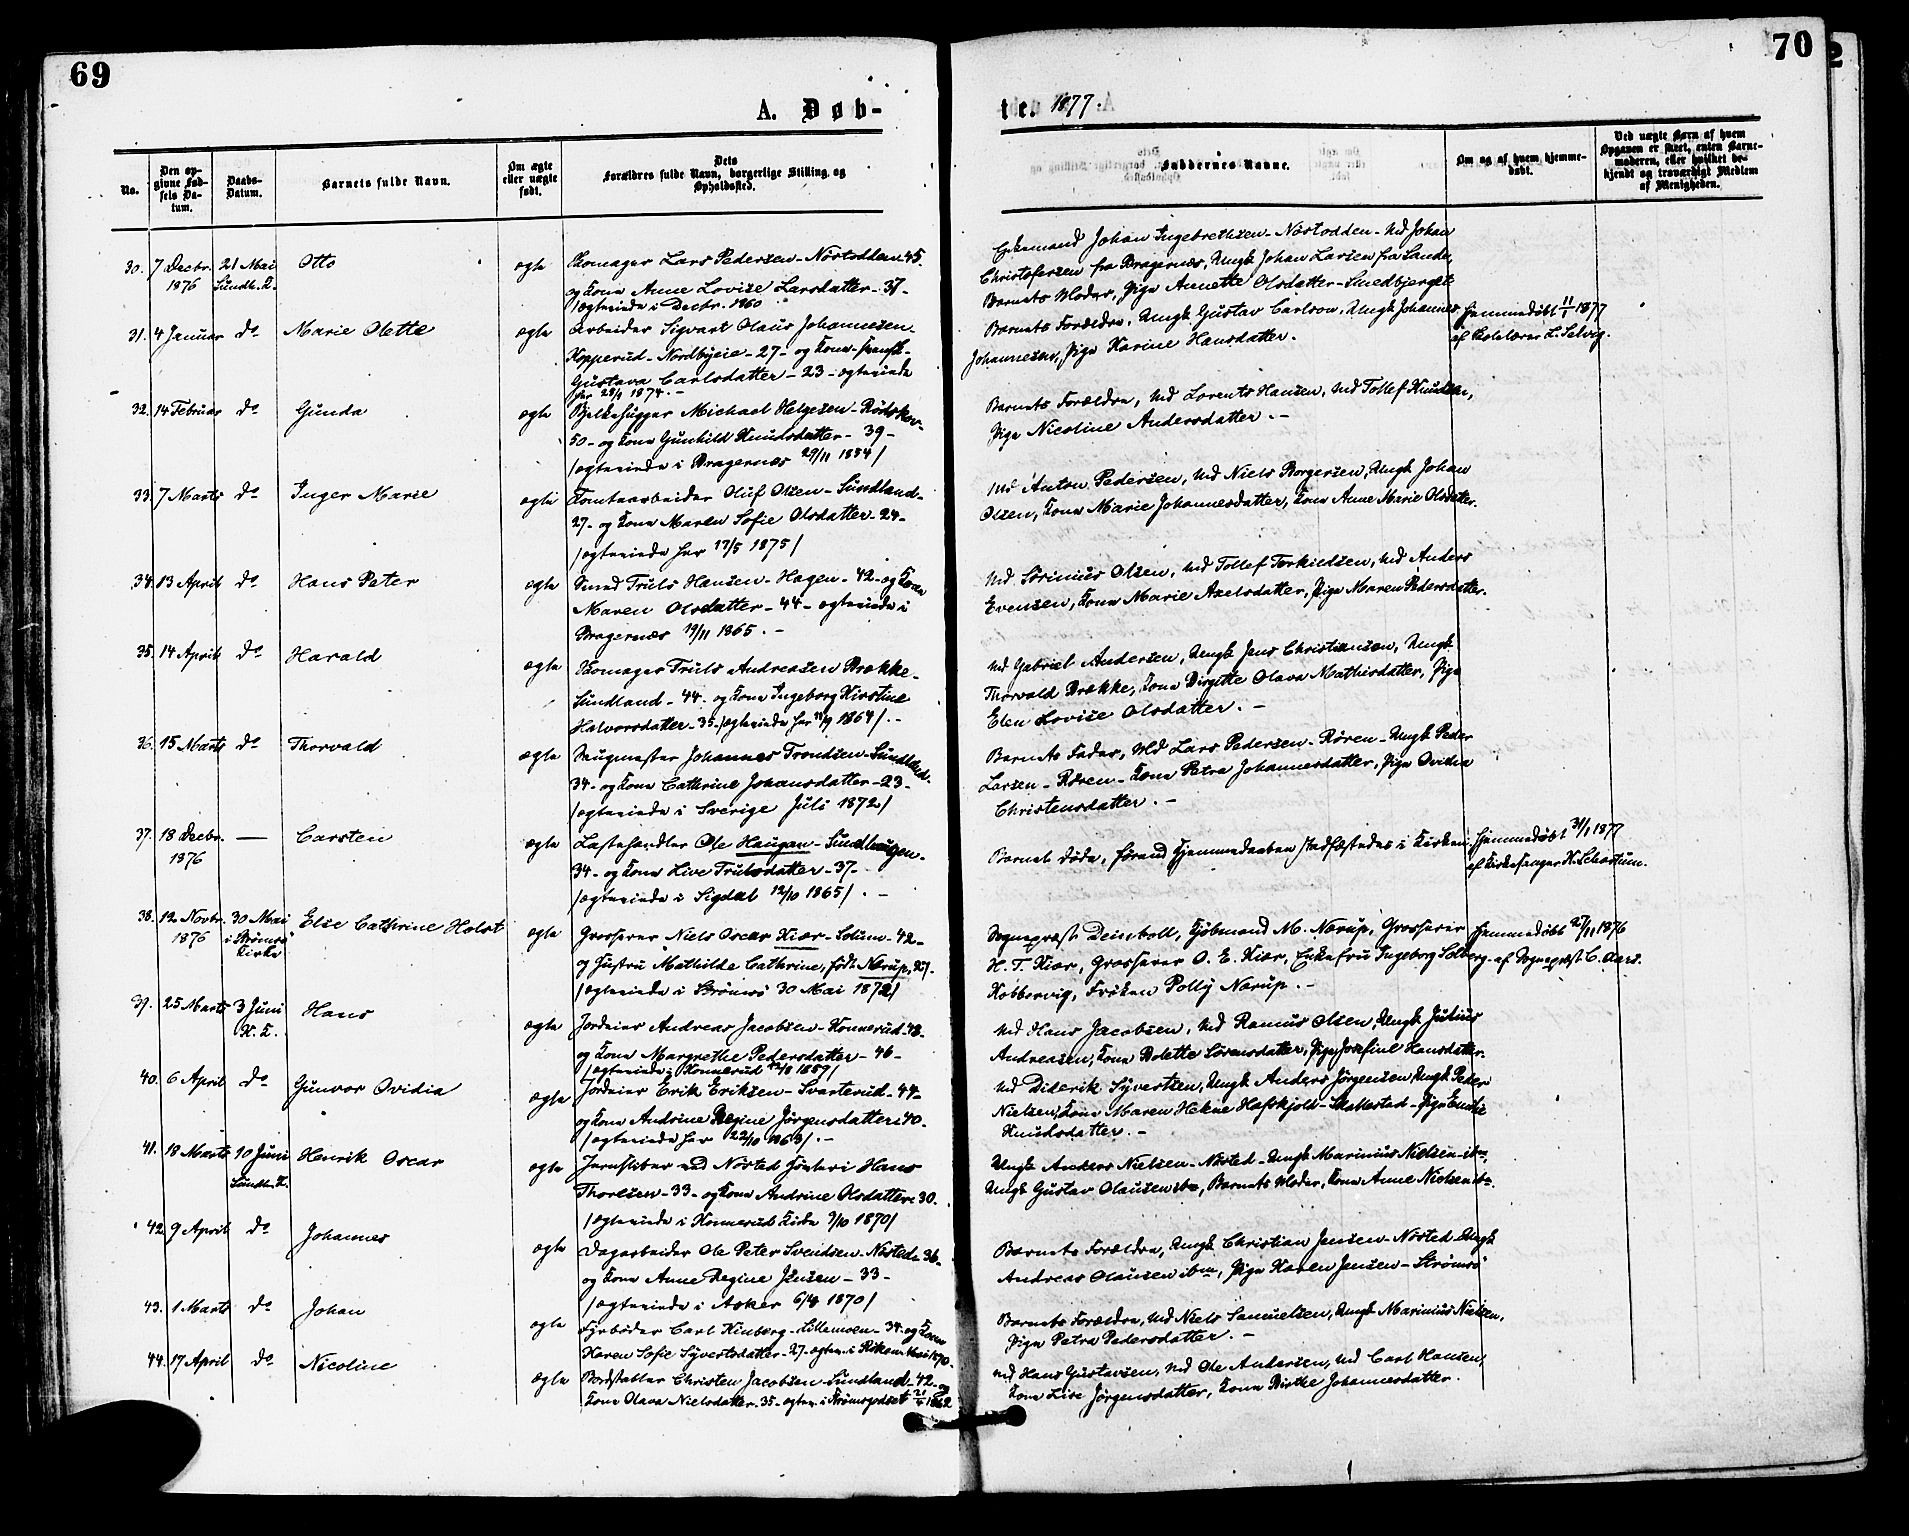 69
70
A. Døb-
te. 1877.
No.
Den opgivne Fødsels Datum.
Daabs-Datum.
Barnets fulde Navn.
Om ægte eller uægte født.
Dets Forældres fulde Navn, borgerlige Stilling og Opholdssted.
Faddernes Navne.
Om og af hvem hjemmedøbt.
Ved uægte Barn af hvem Opgaven er skeet, enten Barnemoderen, eller hvilket bekjendt og troværdigt Medlem af Menigheden.
30. 7 Decbr. 1876
21 Mai Sundh. K.
Otto
ægte
Skomager Lars Pedersen - Nøstodden 45.
og Kone Anne Lovise Larsdatter - 37 -
/ægteviede i Decbr. 1860
Enkemand Johan Ingebrethsen - Nøstodden - Md Johan
Christofersen fra Bragernæs, Ungk Johan Larsen fra Sande,
Barnets Moder, Pige Annette Olsdatter - Smedbjerget
31. 4 Januar do
Marie Olette
ægte
Arbeider Sigvart Olaus Johannesen
Kopperud - Nordbyeie - 27 - og Kone
Gustava Carlsdatter - 23 - ægteviede
her 28/9 1874. -
Barnets Forældre, Ungk Gustav Carlson, Ungk Johannes
Johannesen, Pige Karine Hansdatter.
Hjemmedøbt 11/1 1877
af Skolelærer L. Selvig.
32. 14 Februar do
Gunda
ægte
Bjelkehugger Michael Helgesen - Rødskov -
50 - og Kone Gunhild Knudsdatter - 39 -
/ægteviede i Bragernæs 29/11 1854/
Barnets Forældre, Md Lorents Hansen, Md Tollef Knudsen,
Pige Nicoline Andersdatter. -
33. 7 Marts do
Inger Marie
ægte
Tomtearbeider Oluf Olsen - Sundland -
27 - og Kone Maren Sofie Olsdatter - 24 -
/ægteviede her 17/5 1875/
Md Anton Pedersen, Md Niels Borgersen, Ungk Johan
Olsen, Kone Marie Johannesdatter, Kone Anne Marie Olsdatter.
34. 13 April do
Hans Peter
ægte
Smed Truls Hansen - Hagen - 42 - og Kone
Maren Olsdatter - 44 - ægteviede i
Bragernæs 19/11 1865. -
Md Sørinius Olsen, Md Tollef Torkildsen, Md Anders
Evensen, Kone Marie Axelsdatter, Pige Maren Pedersdatter.
35. 14 April do
Harald
ægte
Skomager Truls Andreasen Brække -
Sundland - 44. og Kone Ingeborg Kirstine
Halvorsdatter - 35. /ægteviede her 11/9 1864/. -
Md Gabriel Andersen, Ungk Jens Christiansen, Ungk
Thorvald Brække, Kone Birgitte Olava Mathisdatter, Pige
Elen Lovise Olsdatter. -
36. 15 Marts do
Thorvald
ægte
Saugmester Johannes Trondsen - Sundland.
34 - og Kone Cathrine Johansdatter - 23 -
/ægteviede i Sverige Juli 1872/
Barnets Fader, Md Lars Pedersen - Røren - Ungk Peder
Larsen - Røren - Kone Petra Johannesdatter, Pige Ovidia
Christensdatter. -
37. 18 Decbr. 1876
—
Carsten
ægte
Lastehandler Ole Haugan - Sundhaugen -
34 - og Kone Live Trulsdatter - 37 -
/ægteviede i Sigdal 12/10 1865/. -
Barnet døde, førend Hjemmedaaben stadfæstedes i Kirken.
Hjemmedøbt 31/1 1877
af Kirkesanger K. Schartum.
38. 12 Novbr. 1876
30 Mai i Strømsø Kirke
Else Cathrine Holst
ægte
Grosserer Niels Oscar Kiær - Solum - 42 -
og Hustru Mathilde Cathrine, født Nærup, 27 -
/ægteviede i Strømsø 30 Mai 1872/
Sognepræst Deinboll, Kjøbmand M. Nærup, Grosserer
H. T. Kiær, Grosserer O. E. Kiær, Enkefru Ingeborg Solberg -
Kobbervig, Frøken Polly Nærup. -
Hjemmedøbt 27/11 1876
af Sognepræst C. Aars.
39. 25 Marts
3 Juni K. K.
Hans
ægte
Jordeier Andreas Jacobsen - Konnerud 48 -
og Kone Margrethe Pedersdatter - 46 -
/ægteviede i Konnerud 1859/
Md Hans Jacobsen, Md Rasmus Olsen, Ungk Julius
Andreasen, Kone Bolette Sørensdatter, Pige Josefine Hansdatter.
40. 6 April do
Gunvor Ovidia
ægte
Jordeier Erik Eriksen - Svarterud - 44 -
og Kone Andrine Regine Jørgensdatter 40.
/ægteviede her 22/10 1863/. -
Md Diderik Syvertsen, Ungk Anders Jørgensen, Ungk Peder
Nielsen, Kone Maren Helene Hafskjold - Skallestad - Pige Emilie
Knudsdatter. -
41. 18 Marts
10 Juni Sundh. K.
Henrik Oscar
ægte
Jernsliber ved Nøsted Jernstøberi Hans
Thoresen - 33 - og Kone Andrine Olsdatter 30.
/ægteviede i Konnerud Kirke 7/10 1870/
Ungk Anders Nielsen - Nøsted - Ungk Marinius Nielsen - ibm,
Ungk Gustav Olausen ibm, Barnets Moder, Kone Anne Nielsen ibm.
42. 9 April do
Johannes
ægte
Dagarbeider Ole Peter Svendsen - Nøsted - 36 -
og Kone Anne Regine Jensen - 33 -
/ægteviede i Asker 6/8 1870/
Barnets Forældre, Ungk Christian Jensen - Nøsted - Ungk
Andreas Olausen ibm, Pige Karen Jensen - Strømsø
43. 1 Marts do
Johan
ægte
Fyrbøder Carl Kinberg - Lillemoen - 34. og Kone
Karen Sofie Syvertsdatter - 27 - ægtev. i Røken Mai 1870.
Barnets Forældre, Md Niels Samuelsen, Ungk Marinius Nielsen,
Pige Petra Pedersdatter. -
44. 17 April do
Nicoline
ægte
Bordstabler Christen Jacobsen - Sundland - 42. og
Kone Olava Nielsdatter - 35 - ægtev. i Strømsgodset 21/4 1862.
Md Hans Gustavsen, Md Ole Andersen, Md Carl Hansen,
Kone Lise Jørgensdatter, Kone Birthe Johannesdatter.